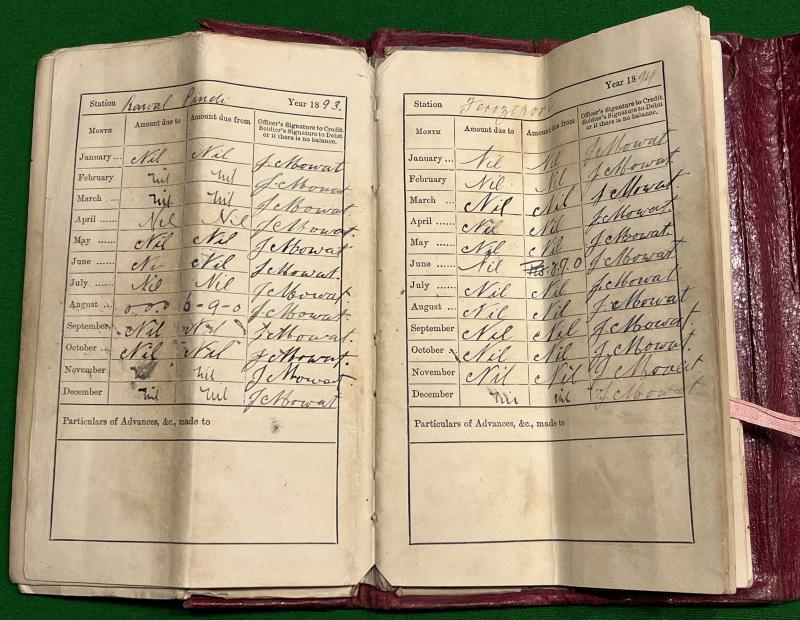 Station Rawal Pindi Year 1893.
Month Amount due to Amount due from Officer's Signature to Credit
Soldier's Signature to Debit
or if there is no balance.
January ... Nil Nil J Mowat
February Nil Nil J Mowat
March ... Nil Nil J Mowat
April ...... Nil Nil J Mowat
May ...... Nil Nil J Mowat
June ...... Nil Nil J Mowat.
July ...... Nil Nil J Mowat
August ... 0.0.0 6-9-0 J Mowat.
September Nil Nil J Mowat.
October ... Nil Nil J Mowat.
November Nil J Mowat
December Nil Nil J Mowat
Particulars of Advances, &c., made to
Station Ferozepore Year 1894
Month Amount due to Amount due from Officer's Signature to Credit
Soldier's Signature to Debit
or if there is no balance.
January ... Nil Nil J Mowat
February Nil Nil J Mowat
March ... Nil Nil J Mowat
April ...... Nil Nil J Mowat.
May ...... Nil Nil J Mowat
June ...... Nil 9.0 J Mowat
July ...... Nil Nil J Mowat
August ... Nil Nil J Mowat
September Nil Nil J Mowat.
October ... Nil Nil J Mowat.
November Nil Nil J Mowat
December Nil Nil J Mowat
Particulars of Advances, &c., made to